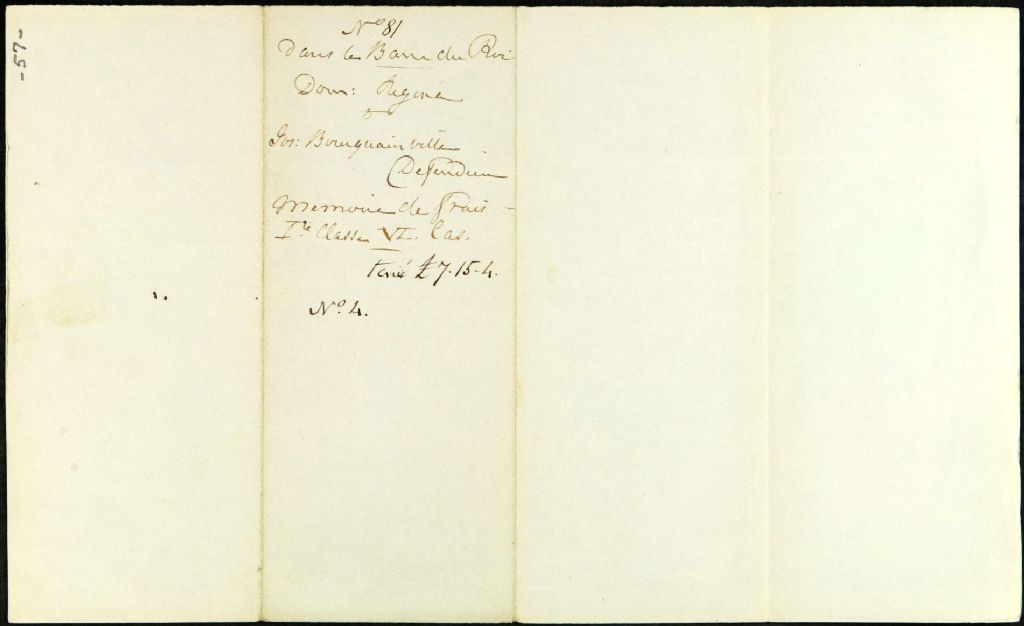 -57-
No 81
Dans le Banc du Roi
Dom: Regina
vs
Jos: Bourguainville
Defendeur
Memoire de Frais -
Ire Classe VI. Cas.
Taxé £7.15.4.
No. 4.